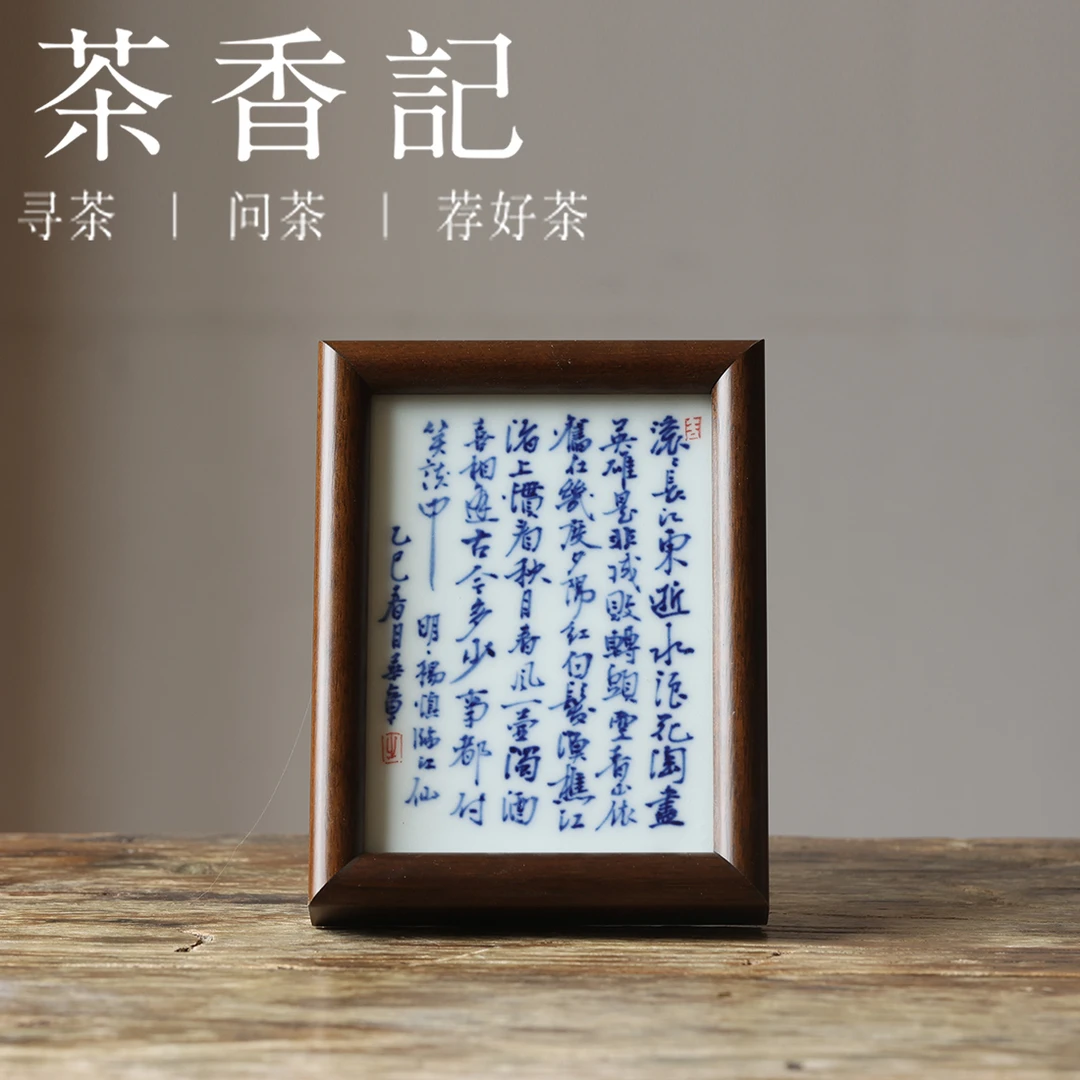 茶香記
寻茶 | 问茶 | 荐好茶
滾々長江東逝水浪花淘盡
英雄是非成敗轉頭空青山依
舊在幾度夕陽紅白髮漁樵江
渚上慣看秋月春风一壺濁酒
喜相逢古今多少事都付
笑談中
明、楊慎臨江仙
乙巳春月